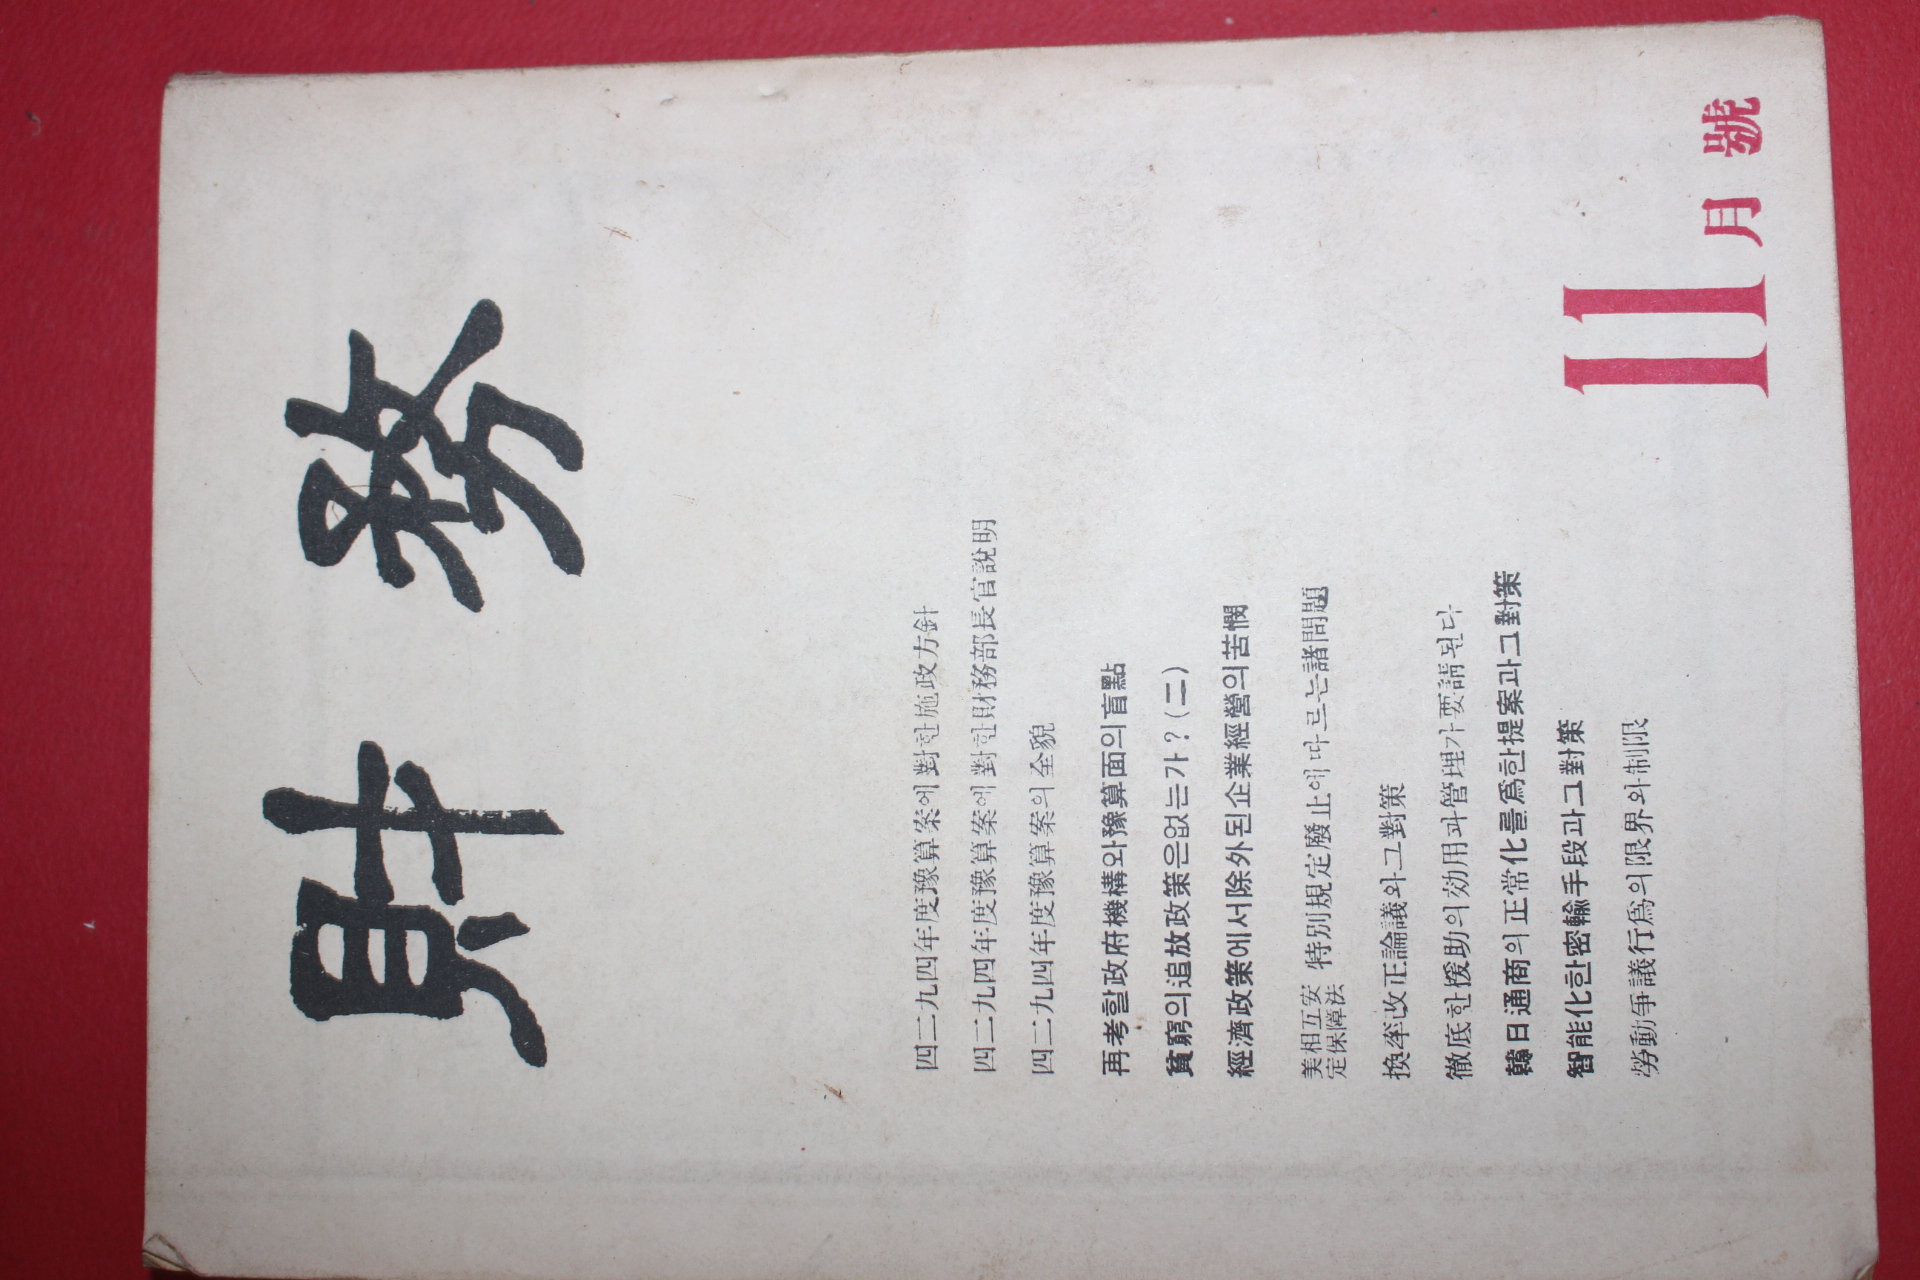 財務
四二九四年度豫算案에對한施政方針
四二九四年度豫算案에對한財務部長官說明
四二九四年度豫算案의全貌
再考할政府機構와豫算面의盲點
貧窮의追放政策은없는가?(二)
經濟政策에서除外된企業經營의苦憫
美相互安
定保障法 特別規定廢止에따르는諸問題
換率改正論議와그對策
徹底한援助의効用과管理가要請된다
韓日通商의正常化를爲한提案과그對策
智能化한密輸手段과그對策
勞動爭議行爲의限界와制限
11月號